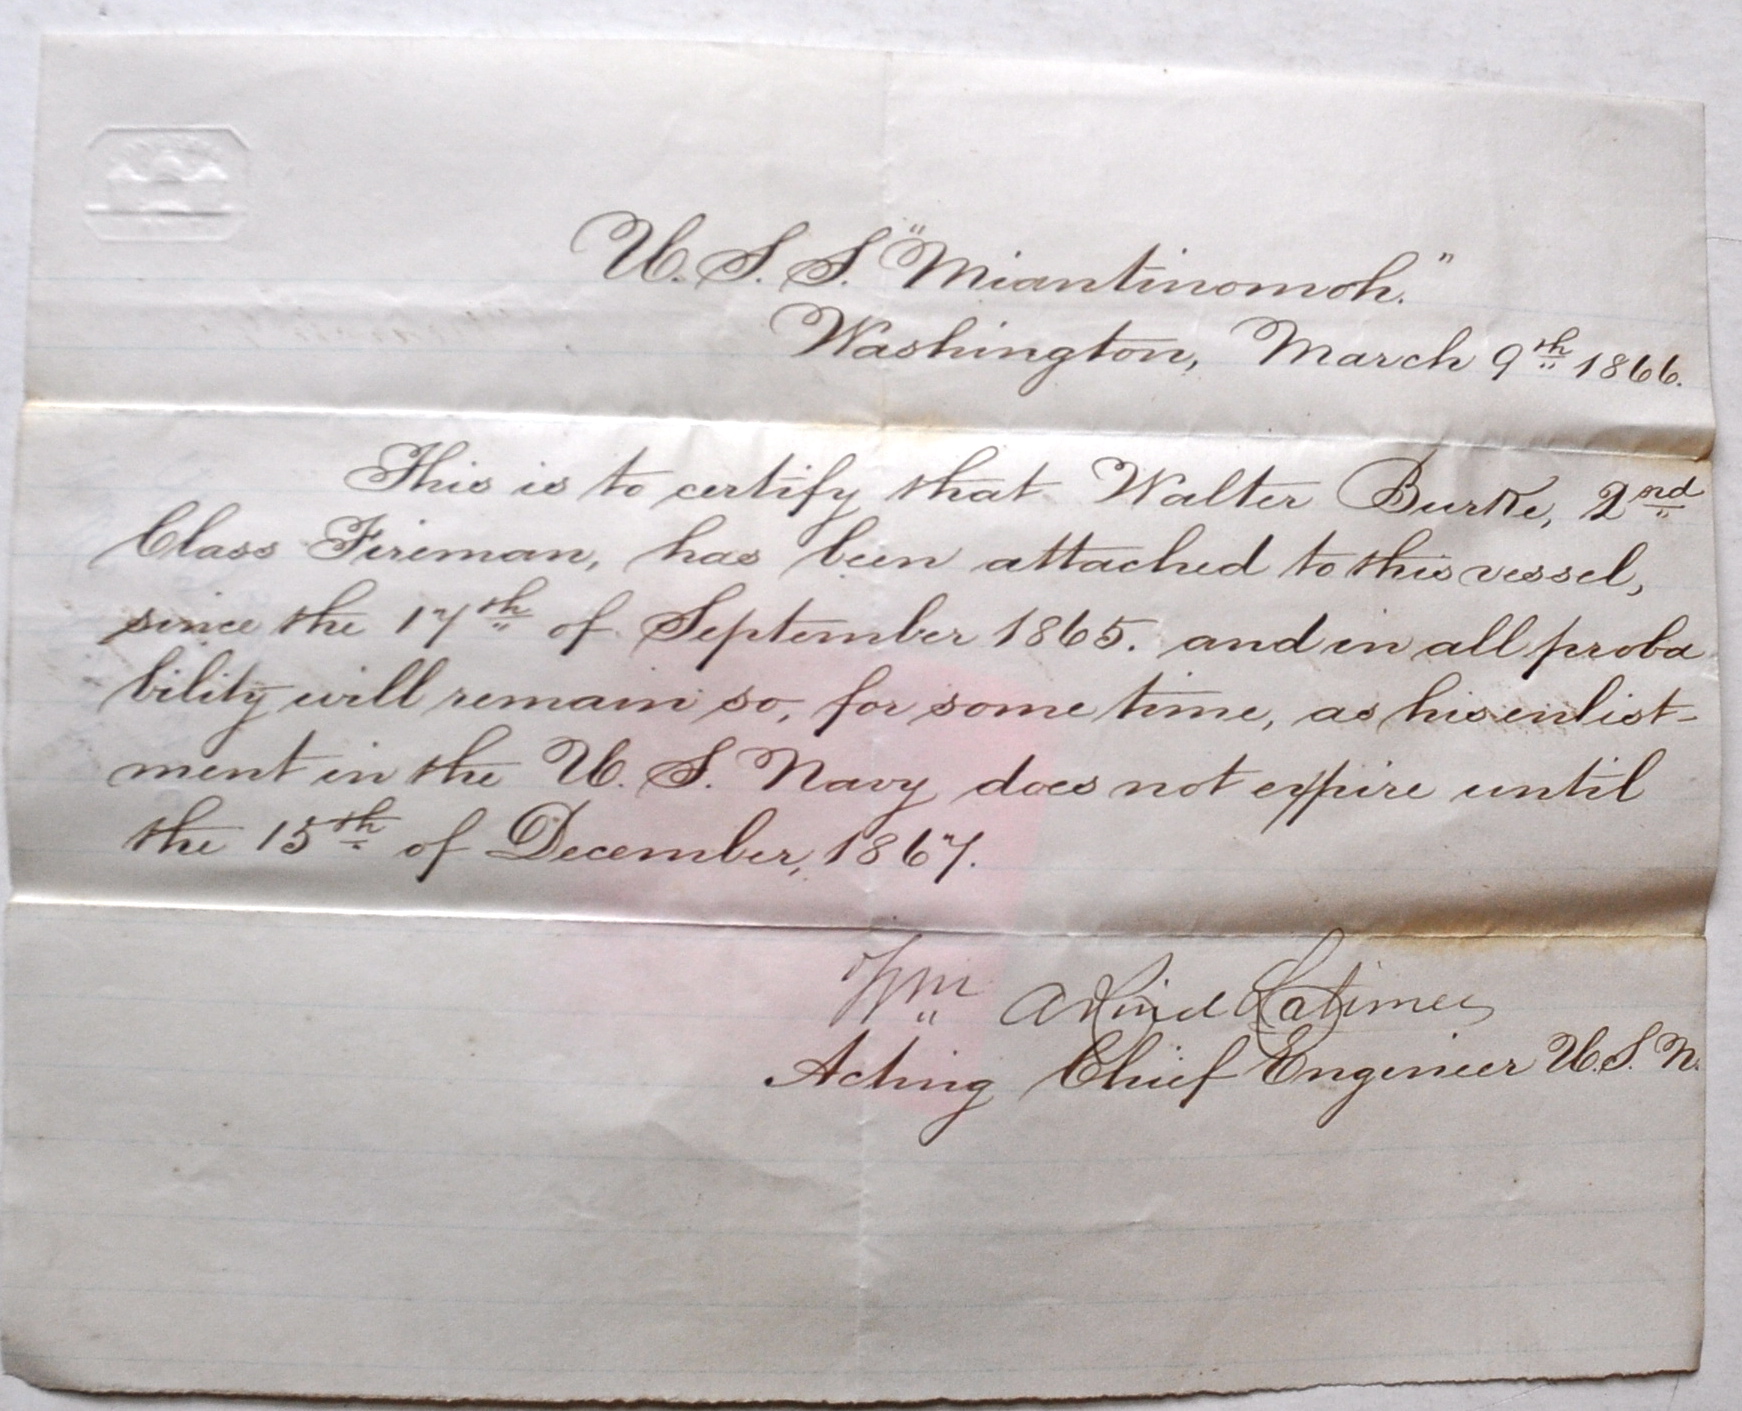 U. S. S. "Miantinomoh."
Washington, March 9th 1866.
This is to certify that Walter Burke, 2nd
Class Fireman, has been attached to this vessel,
since the 17th of September 1865. and in all proba
bility will remain so, for some time, as his enlist-
ment in the U. S. Navy does not expire until
the 15th of December, 1867.
Wm Latimer
Acting Chief Engineer U.S.N.